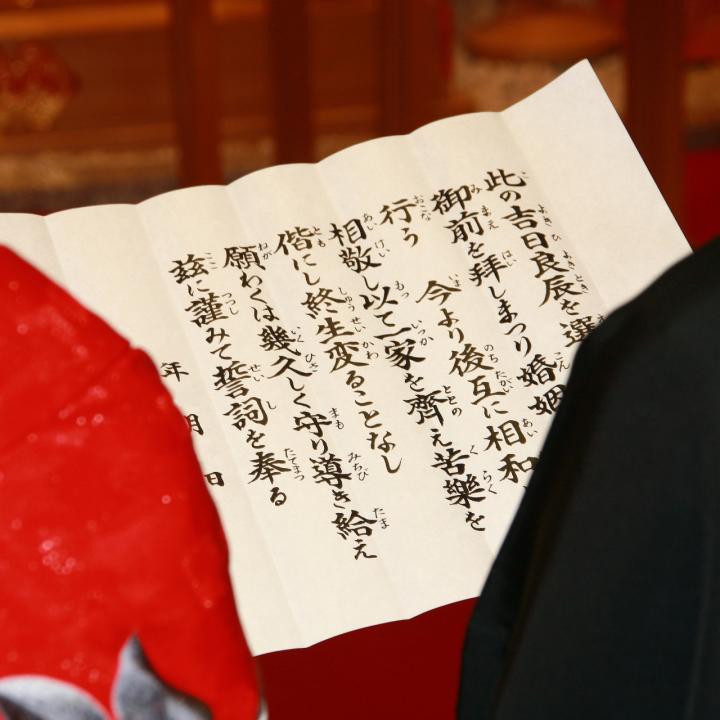 此の吉日良辰を選
御前を拝しまつり婚姻
行う　今より後互に相和
相敬し以て一家を齊え苦樂を
偕にし終生変ることなし
願わくは幾久しく守り導き給え
茲に謹みて誓詞を奉る
年　月　日